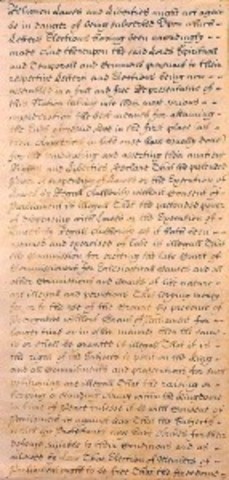 Religion Lawes and Liberties might not againe
be in danger of being subverted Upon which
Letters Elections having been accordingly
made And thereupon the said Lords Spirituall
and Temporall and Commons pursuant to their
respective Letters and Elections being now
assembled in a full and free Representative of
this Nation taking into their most serious
consideration the best meanes for attaining
the Ends aforesaid Doe in the first place (as
their Ancestors in like case have usually done)
for the vindicating and asserting their auntient
Rights and Liberties, Declare That the pretended
Power of suspending of Lawes or the Execution of
Lawes by Regall Authority without Consent of
Parliament is illegall That the pretended power
of dispensing with Lawes or the Execution of
Lawes by Regall Authority as it hath been
assumed and exercised of late is illegall That
the Commission for erecting the late Court of
Commissioners for Ecclesiasticall Causes and all
other Commissions and Courts of like nature
are illegall and pernicious That levying money
for or to the use of the Crowne by pretence of
Prerogative without Grant of Parliament for
longer time or in other manner then the same
is or shall be granted is illegall That it is
the right of the Subjects to petition the King
and all Commitments and prosecutions for such
petitioning are illegall That the raising or
keeping a standing Army within the Kingdome
in time of Peace unlesse it be with consent of
Parliament is against Law That the Subjects
which are Protestants may have Armes for their
defence suitable to their Conditions and as
allowed by Law That Election of Members of
Parliament ought to be free That the freedome